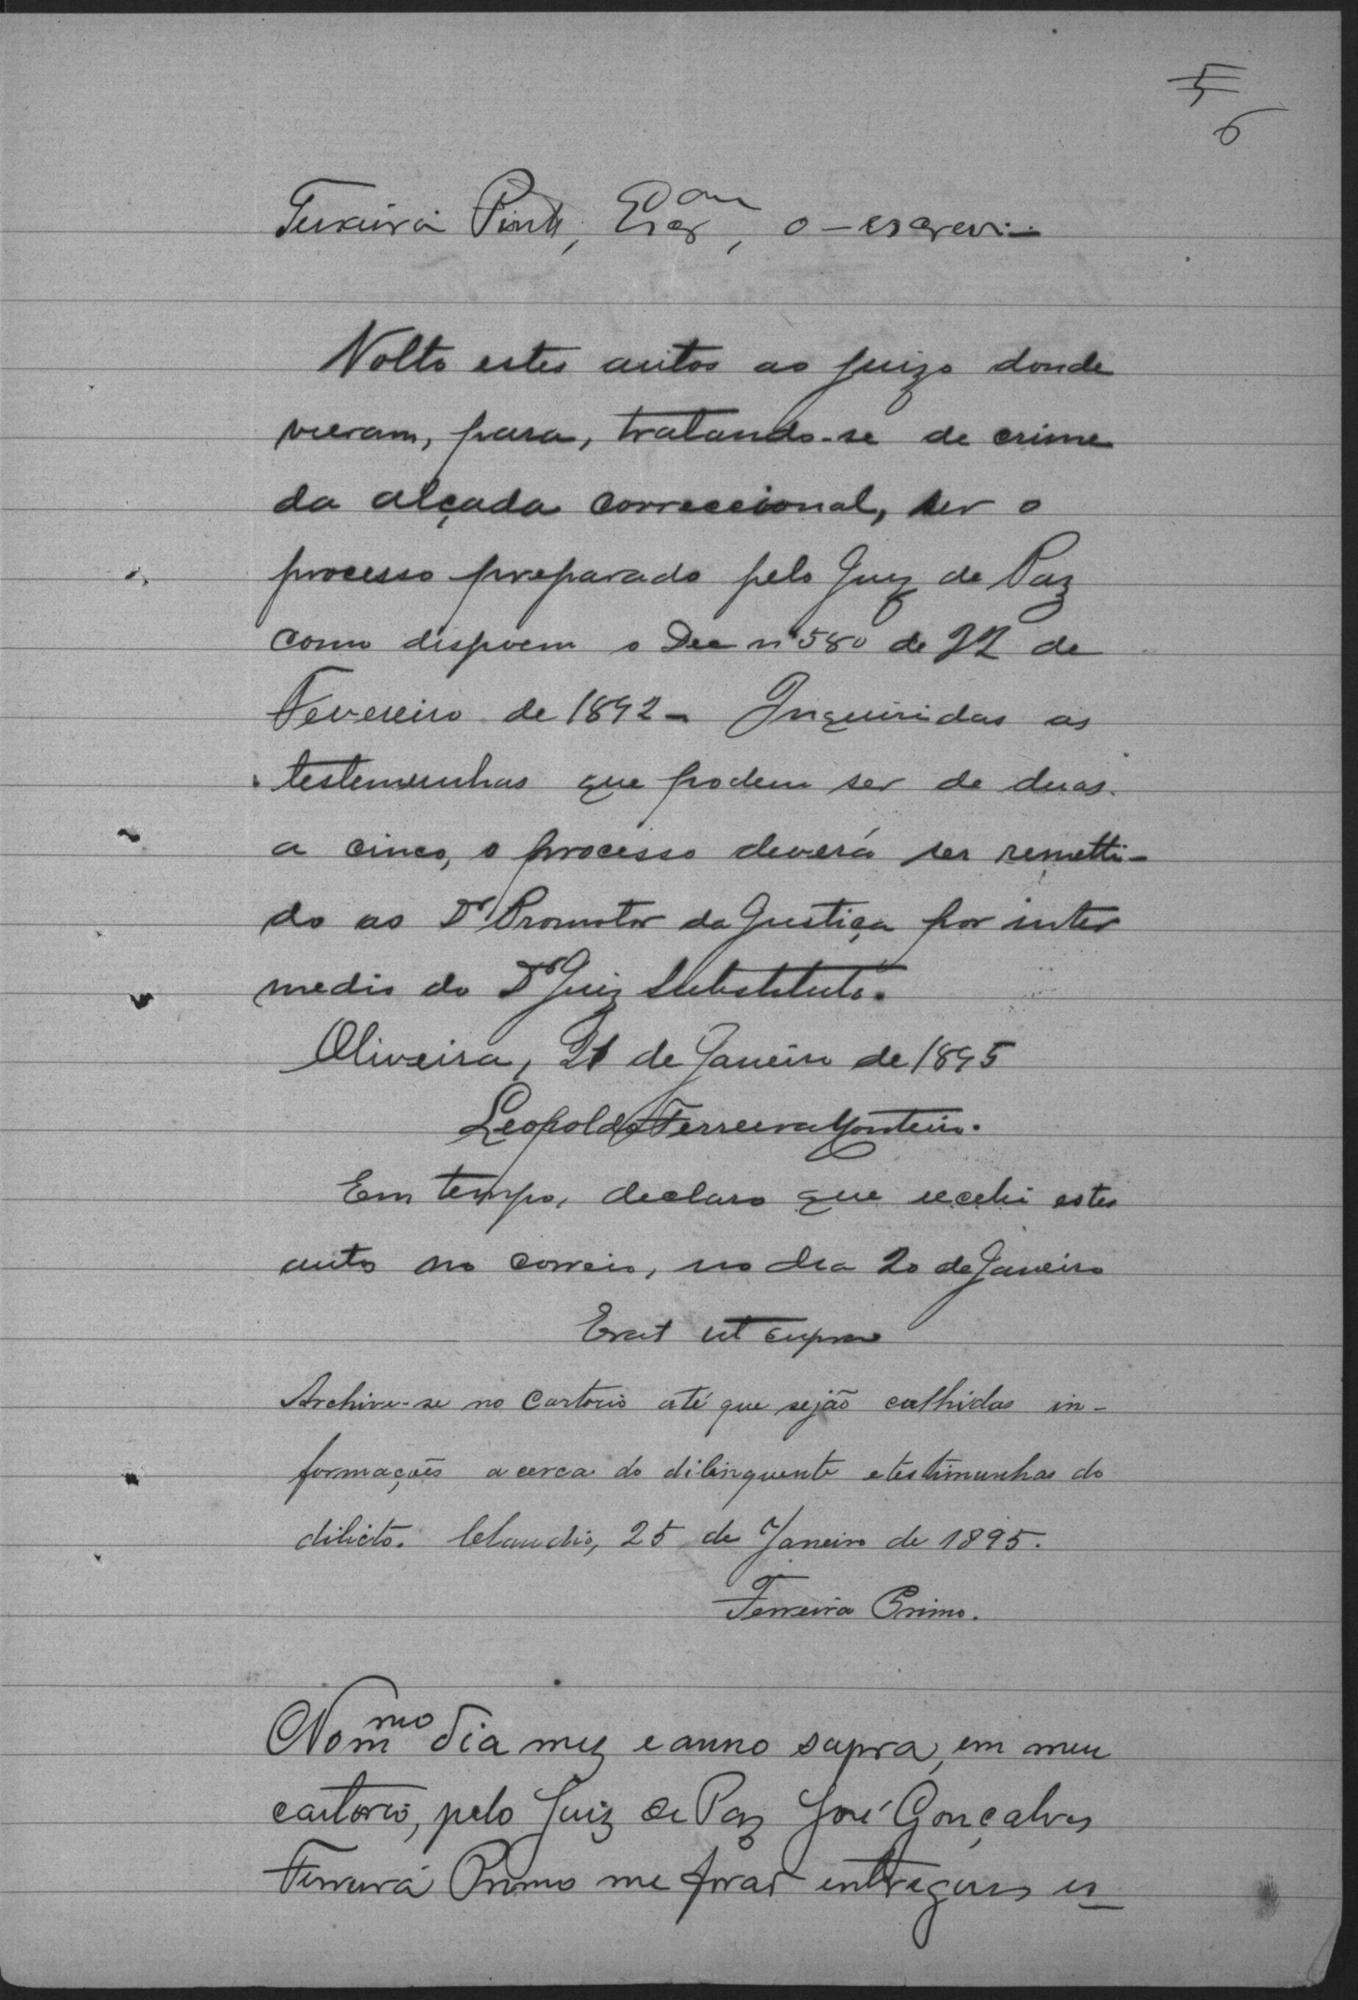 5
6
Teixeira Pinto, Escr.am, o escrevi.
Volto estes autos ao juizo donde
vieram, para, tratando-se de crime
da alçada correccional, ser o
processo preparado pelo Juiz de Paz
como dispoem o Dec nº 580 de 22 de
Fevereiro de 1892 - Inqueridas as
testemunhas que podem ser de duas
a cinco, o processo deverá ser remetti-
do ao Dr Promotor da Justiça por inter
medio do Dr Juiz Substituto.
Oliveira, 21 de Janeiro de 1895
Leopoldo Ferreira Monteiro.
Em tempo, declaro que recebi estes
autos no correio, no dia 20 de Janeiro
Erat ut supra
Archive-se no Cartorio até que sejão colhidas in-
formações acerca do dilinquente e testimunhas do
dilicto. Claudio, 25 de Janeiro de 1895.
Ferreira Primo.
No mmo dia mez e anno supra, em meu
cartorio, pelo Juiz de Paz José Gonçalves
Ferreira Primo me forão entregues es